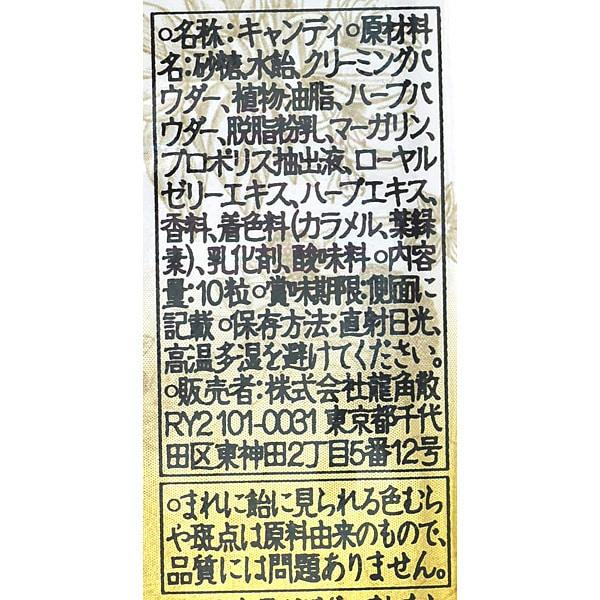 ○名称:キャンディ○原材料
名:砂糖、水飴、クリーミングパ
ウダー、植物油脂、ハーブパ
ウダー、脱脂粉乳、マーガリン、
プロポリス抽出液、ローヤル
ゼリーエキス、ハーブエキス、
香料、着色料(カラメル、葉緑
素)、乳化剤、酸味料○内容
量:10粒○賞味期限:側面に
記載○保存方法:直射日光、
高温多湿を避けてください。
○販売者:株式会社龍角散
RY2 101-0031 東京都千代
田区東神田2丁目5番12号
○まれに飴に見られる色むら
や斑点は原料由来のもので、
品質には問題ありません。